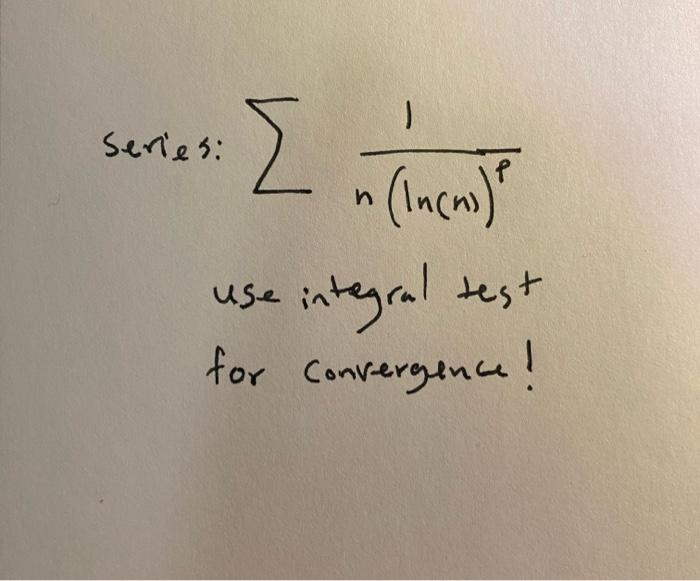 series: ∑ 1 / n (ln(n))^p
use integral test
for convergence!